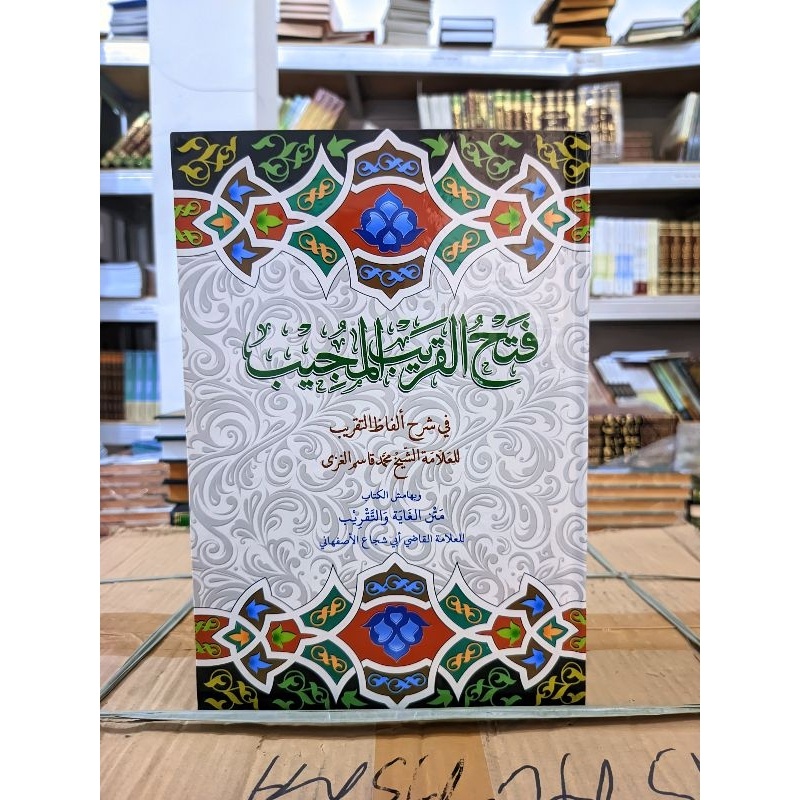 فَتْحُ القَرِيْبِ المُجِيْبِ
في شرح ألفاظ التقريب
للعلامة الشيخ محمد قاسم الغزى
وبهامش الكتاب
مَتْن الغَايَة وَالتَّقْرِيْب
للعلامة القاضي أبي شجاع الأصفهاني